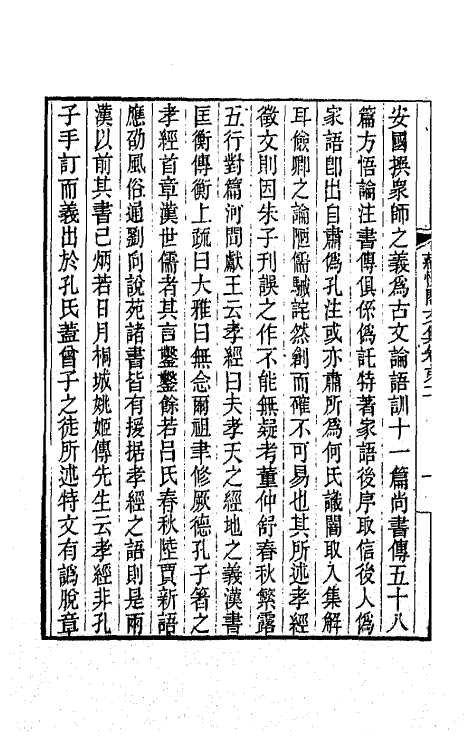 安國撰衆師之義爲古文論語訓十一篇尚書傳五十八
篇方悟論注書傳俱係僞託特著家語後序取信後人僞
家語卽出自肅僞孔注或亦肅所爲何氏識闇取入集解
耳儉卿之論陋儒駴詫然創而確不可易也其所述孝經
徵文則因朱子刊誤之作不能無疑考董仲舒春秋繁露
五行對篇河間獻王云孝經曰夫孝天之經地之義漢書
匡衡傳衡上疏曰大雅曰無念爾祖聿修厥德孔子著之
孝經首章漢世儒者其言鑿鑿餘若呂氏春秋陸賈新語
應劭風俗通劉向說苑諸書皆有援据孝經之語則是兩
漢以前其書已炳若日月桐城姚姬傳先生云孝經非孔
子手訂而義出於孔氏蓋曾子之徒所述特文有譌脫章
一